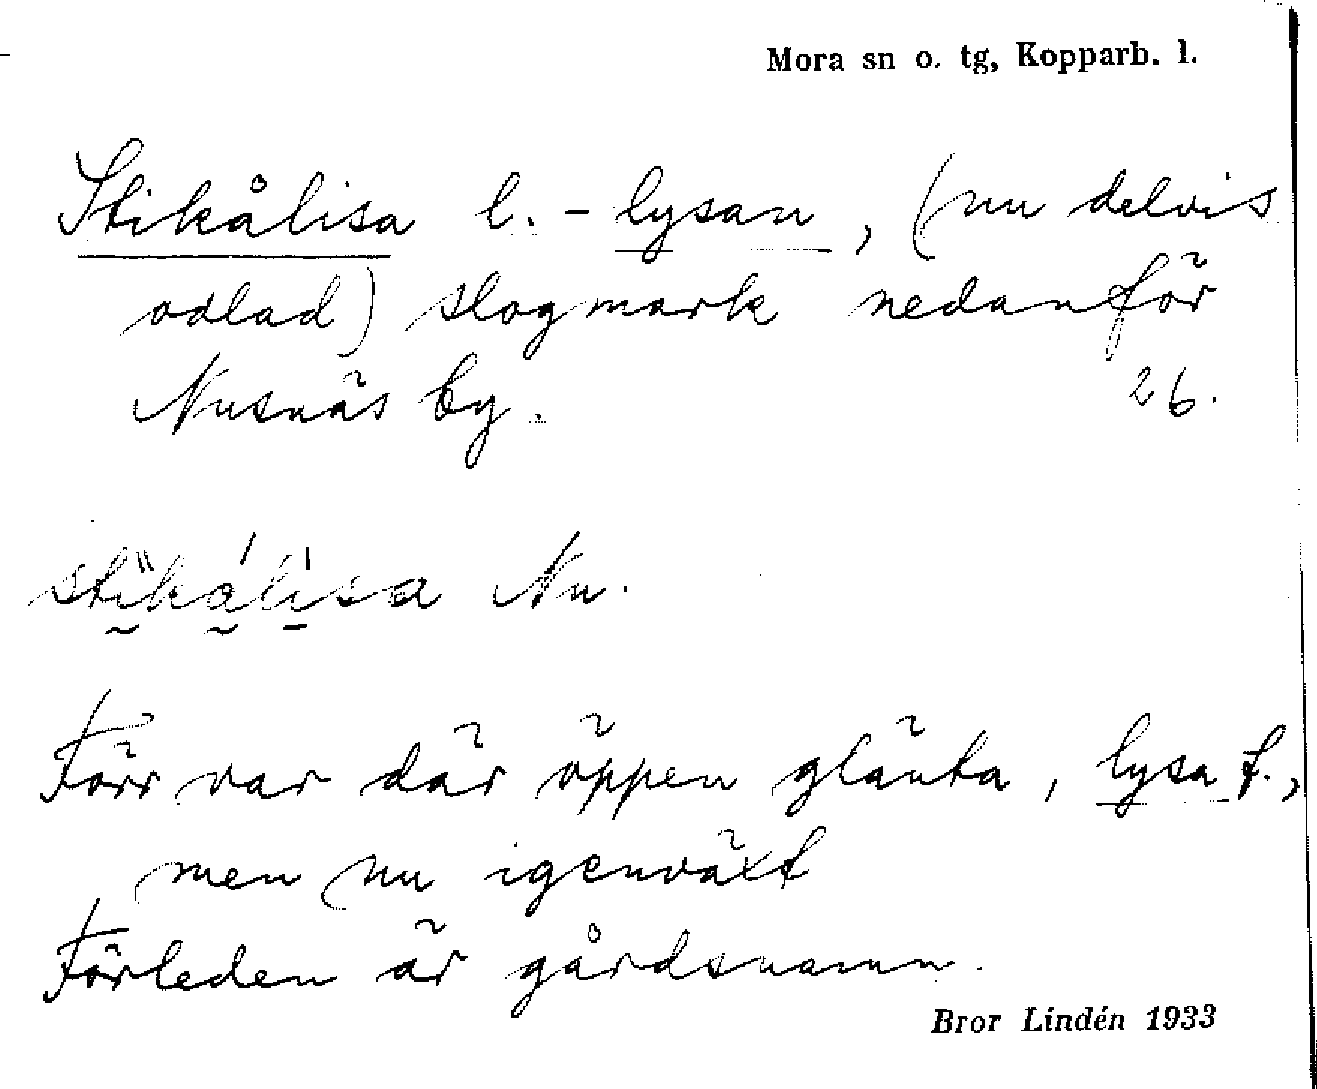 Mora sn o. tg, Kopparb. l.
Stikålisa l. -lysan, (nu delvis
odlad) slogmark nedanför
Nusnäs by. 26.
stikålisa Nu.
Förr var där öppen glänta, lysa f.,
men nu igenväxt
Förleden är gårdsnamn.
Bror Lindén 1933